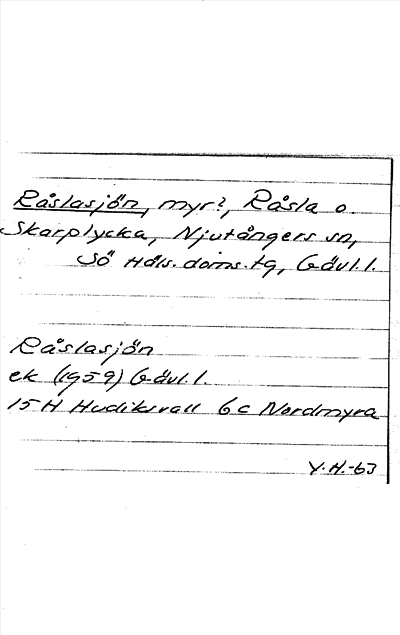 Råslasjön, myr?, Råsla o.
Skarplycka, Njutångers sn,
Sö Häls. doms. tg, Gävl. l.
Råslasjön
ek (1959) Gävl. l.
15 H Hudiksvall 6c Nordmyra
Y.H.-63